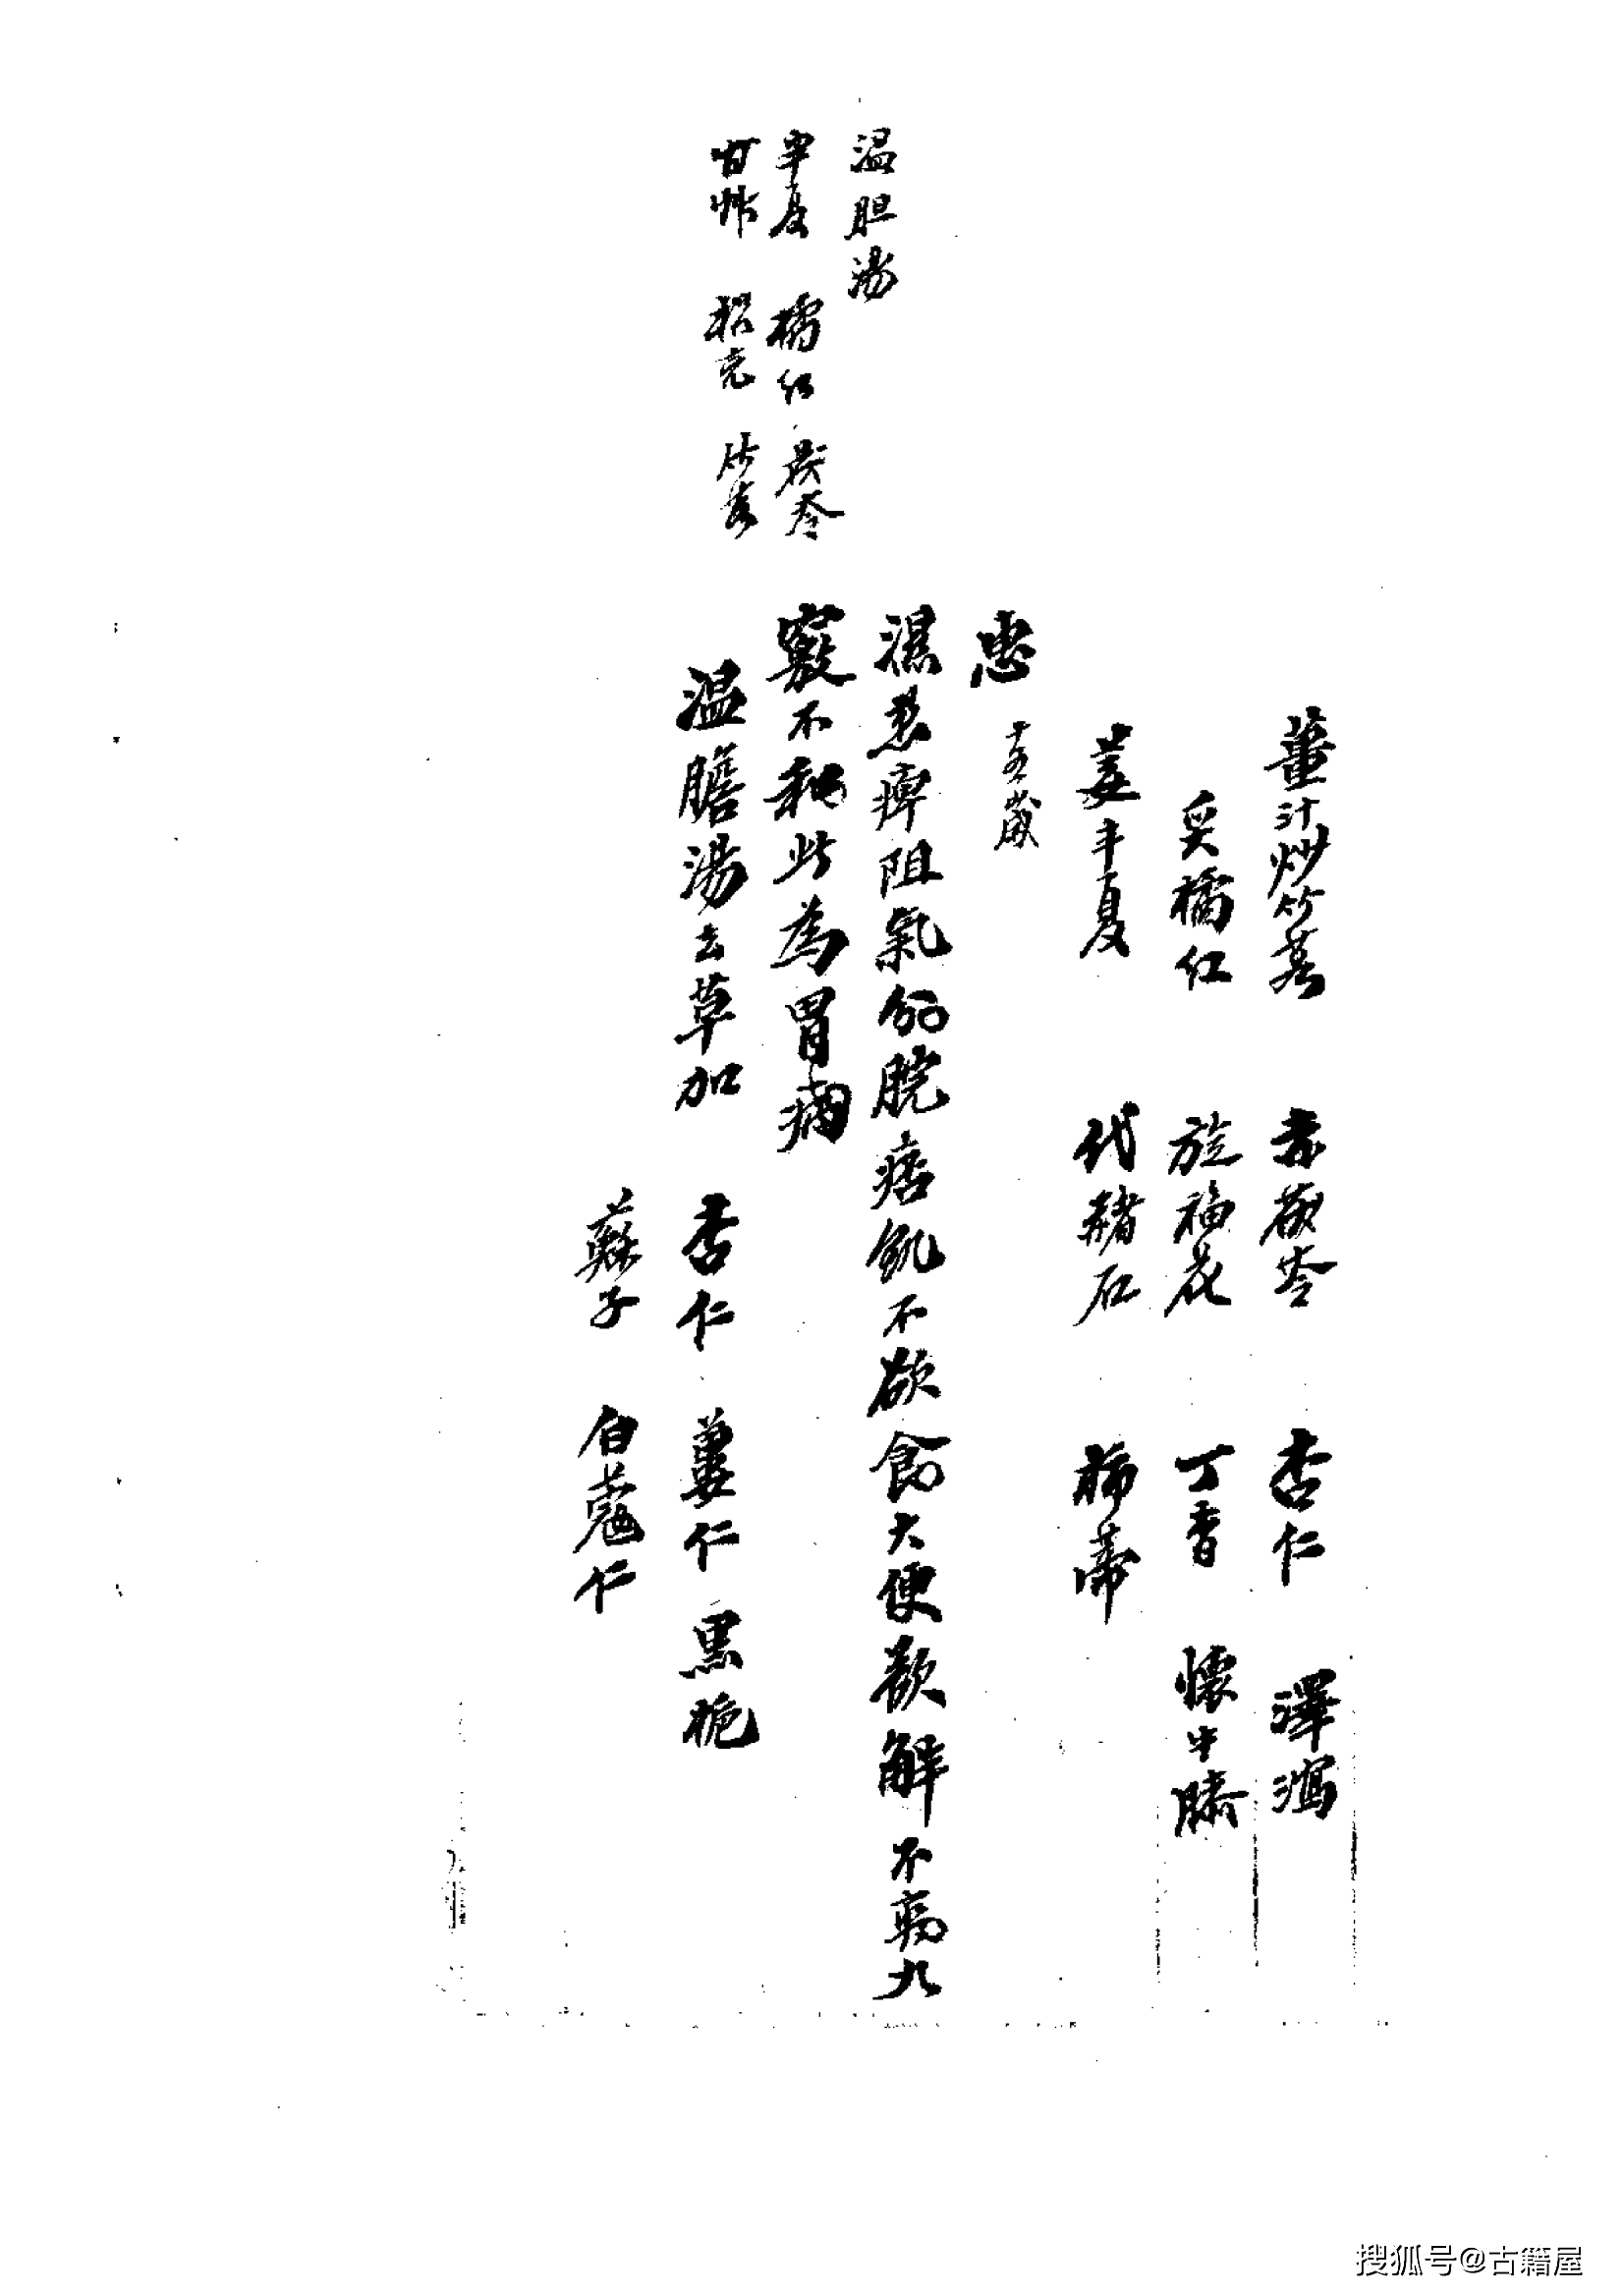 薑汁炒竹茹 赤茯苓 杏仁 澤瀉
奐橘红 旋福花 丁香 懷牛膝
姜半夏 代赭石 柿蒂
惠 十五歲
濕熱痺阻氣分脘痞飢不欲食大便欲解不爽九
竅不和此為胃病
温膽湯去草加 杏仁 蔞仁 黑梔
蘇子 白蔻仁
温胆湯
半夏 橘红 茯苓
甘草 枳壳 竹茹
搜狐号@古籍屋